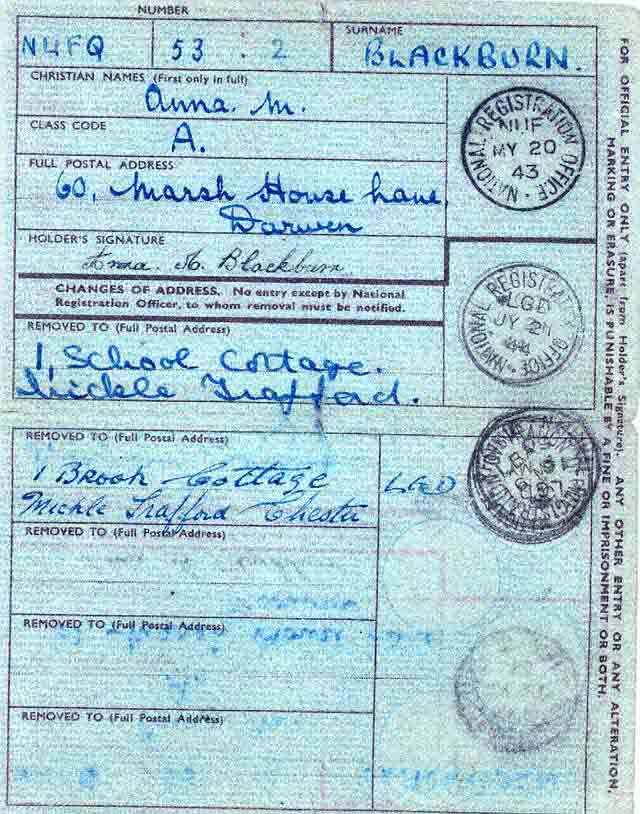 NUMBER
N4FQ 53 . 2
SURNAME
BLACKBURN.
CHRISTIAN NAMES (First only in full)
Anna. M.
CLASS CODE
A.
FULL POSTAL ADDRESS
60, Marsh House Lane,
Darwen
HOLDER'S SIGNATURE
A. Blackburn
CHANGES OF ADDRESS. No entry except by National
Registration Officer, to whom removal must be notified.
REMOVED TO (Full Postal Address)
1, School Cottage.
Mickle Trafford.
REMOVED TO (Full Postal Address)
1 Brook Cottage
Mickle Trafford Chester
LGD
REMOVED TO (Full Postal Address)
REMOVED TO (Full Postal Address)
REMOVED TO (Full Postal Address)
NATIONAL REGISTRATION OFFICE
MY 20
43
NATIONAL REGISTRATION OFFICE
LGD
JY 2
44
FOR OFFICIAL ENTRY ONLY (apart from Holder's Signature). ANY OTHER ENTRY OR ANY ALTERATION,
MARKING OR ERASURE, IS PUNISHABLE BY A FINE OR IMPRISONMENT OR BOTH.